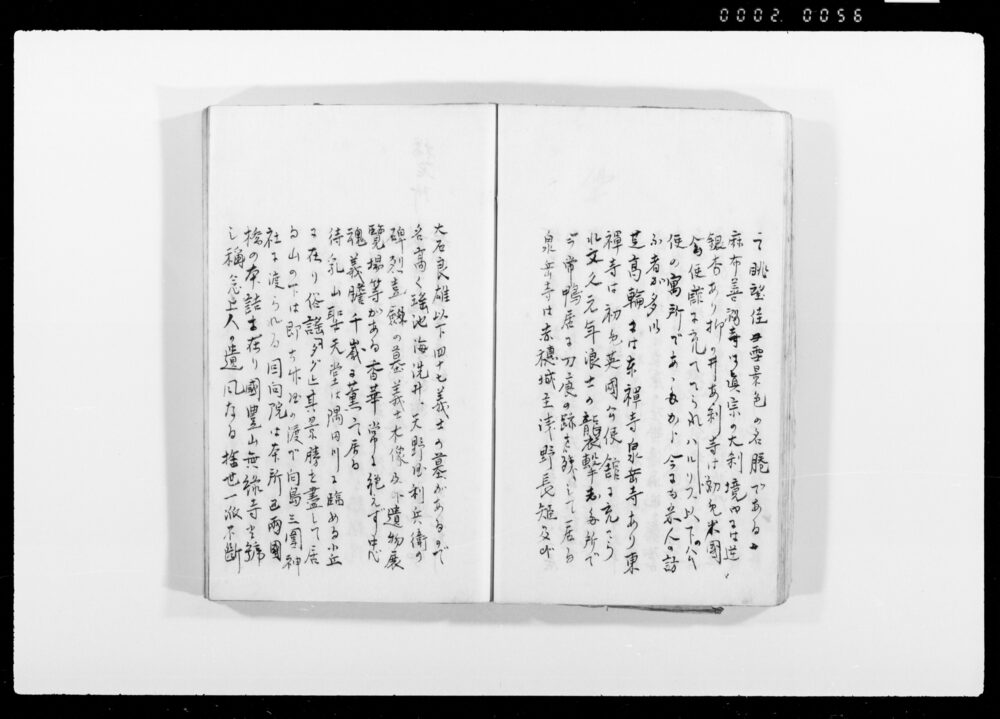 0002 0056
之眺望佳雪景色の名勝である
麻布善福寺は眞宗の大刹境内には逆
銀杏あり 井あ 刹寺は初め米國
公使館に充てられハルリス以下の公
使の寓所であ 今も米人の訪
ふ者が多い
芝高輪には東禪寺泉岳寺あり東
禪寺は初め英國公使館に充
れ文久元年浪士の襲擊 所で
今尚鴨居に刀痕の跡を残して居る
泉岳寺は赤穂城主浅野長矩及
大石良雄以下四十七義士の墓があるので
名高く瑤池梅洗井、天野屋利兵衛の
碑烈 の墓義士木像及 遺物展
覽場等がある香華常に絶えず忠
魂義膽千歳に薫て居る
待乳山聖天堂は隅田川に臨める小丘
に在り俗謠 其景勝を盡して居
る山の下は即ち 渡で向島三圍神
社に渡られる回向院は本所 両國
橋の本詰に在り國豊山無縁寺と號
し稱念上人の遺風なる捨世一派不斷